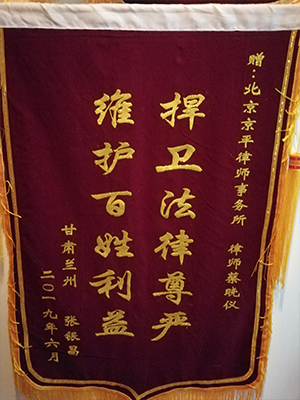 赠：北京京平律师事务所 律师蔡晓仪
捍卫法律尊严
维护百姓利益
甘肃兰州 张银昌
二〇一九年六月